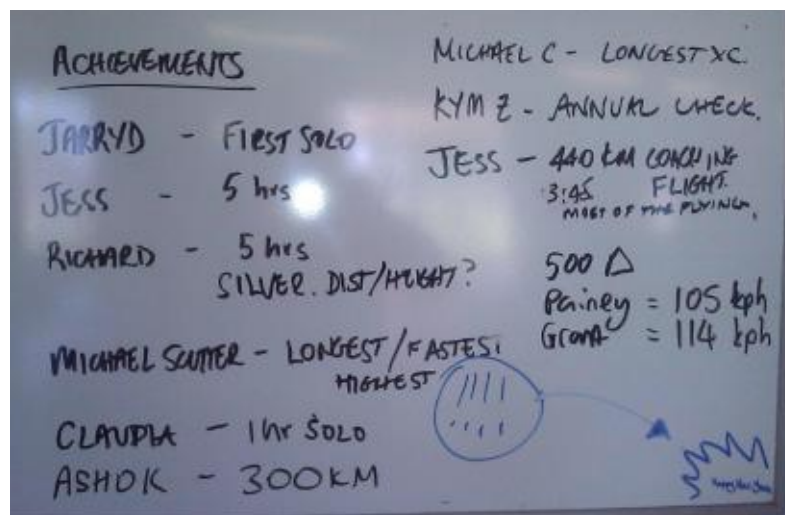 ACHIEVEMENTS
JARRYD - FIRST SOLO
JESS - 5 hrs
RICHARD - 5 hrs
SILVER. DIST/HEIGHT?
MICHAEL SCUTTER - LONGEST/FASTEST
HIGHEST
CLAUDIA - 1 hr SOLO
ASHOK - 300KM
MICHAEL C - LONGEST XC.
KYM Z - ANNUAL CHECK.
JESS - 440 KM COACHING
3:45 FLIGHT.
MOST OF THE FLYING.
500 △
Painey = 105 kph
Grant = 114 kph